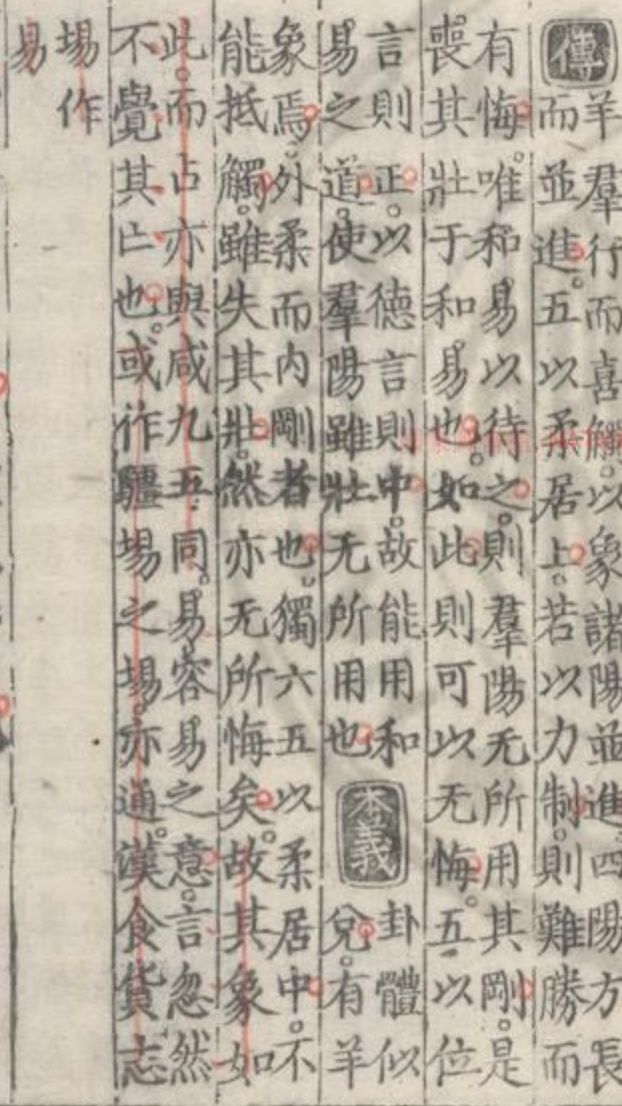 傳
羊羣行而喜觸。以象諸陽並進。四陽方長
而並進。五以柔居上。若以力制。則難勝而
有悔。唯和易以待之。則羣陽无所用其剛。是
喪其壯于和易也。如此則可以无悔。五以位
言則正。以德言則中。故能用和
易之道。使羣陽雖壯无所用也
本義
卦體似
兌。有羊
象焉。外柔而內剛者也。獨六五以柔居中。不
能抵觸。雖失其壯。然亦无所悔矣。故其象如
此。而占亦與咸九五同。易容易之意。言忽然
不覺其亡也。或作疆埸之埸。亦通。漢食貨志
埸作
易